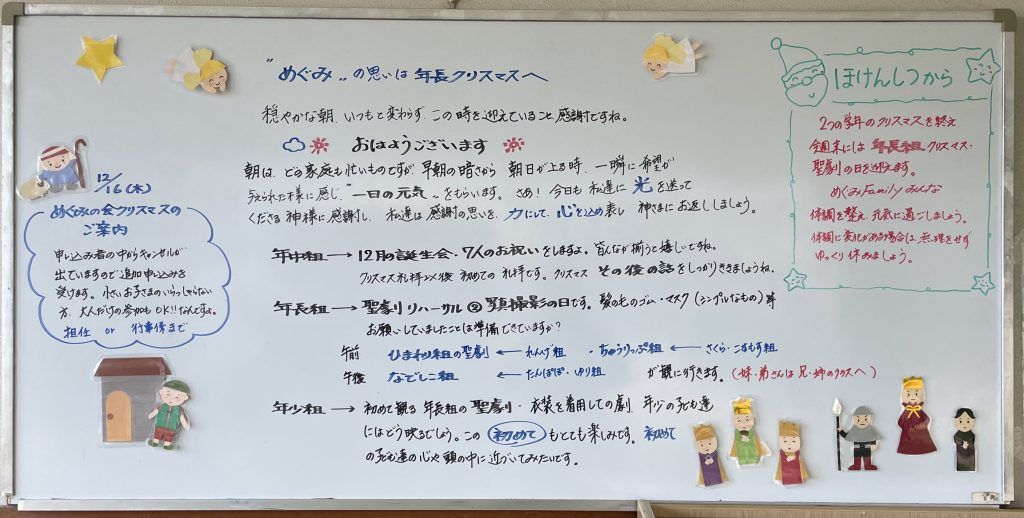 "めぐみ„の思いは年長クリスマスへ
穏やかな朝、いつもと変わらず、この時を迎えていること、感謝ですね。
おはようございます
朝は、どの家庭も忙いものですが、早朝の暗さから、朝日が上る時、一瞬に希望が
与えられた様に感じ、"一日の元気„をもらいます。さぁ!今日も私達に光を送って
くださる神様に感謝し、私達は感謝の思いを、力にして、心を込め表し、神さまにお返ししましょう。
年中組→12月の誕生会・7人のお祝いをしますよ。皆んなが揃うと嬉しいですね。
クリスマス礼拝〆後、初めての礼拝です。クリスマスその後の話をしっかりききましょうね。
年長組→聖劇リハーサル②写真撮影の日です。髪の毛のゴム・マスク(シンプルなもの)等
お願いしていましたことは準備できていますか?
午前 ひまわり組の聖劇 ← れんげ組 ・ちゅうりっぷ組 ← さくら・こすもす組
午後 なでしこ組 ← たんぽぽ・ゆり組 が観に行きます。(妹・弟さんは兄・姉のクラスへ)
年少組→初めて観る年長組の聖劇・衣装を着用しての劇、年少の子ども達
にはどう映るでしょう。この初めてもとても楽しみです。初めて
の子ども達の心や頭の中に近づいてみたいです。
12/16(木)
めぐみの会クリスマスの
ご案内
申し込み者の中からキャンセルが
出ていますので追加申し込みを
受けます。小さいお子さまのいらっしゃらない
方、大人だけの参加もOK!!なんですよ。
担任 or 行事係まで
ほけんしつから
2つの学年のクリスマスを終え
今週末には年長組クリスマス・
聖劇の日を迎えます。
めぐみFamilyみんな
体調を整え、元気に過ごしましょう。
体調に変化がある場合は、無理をせず
ゆっくり休みましょう。